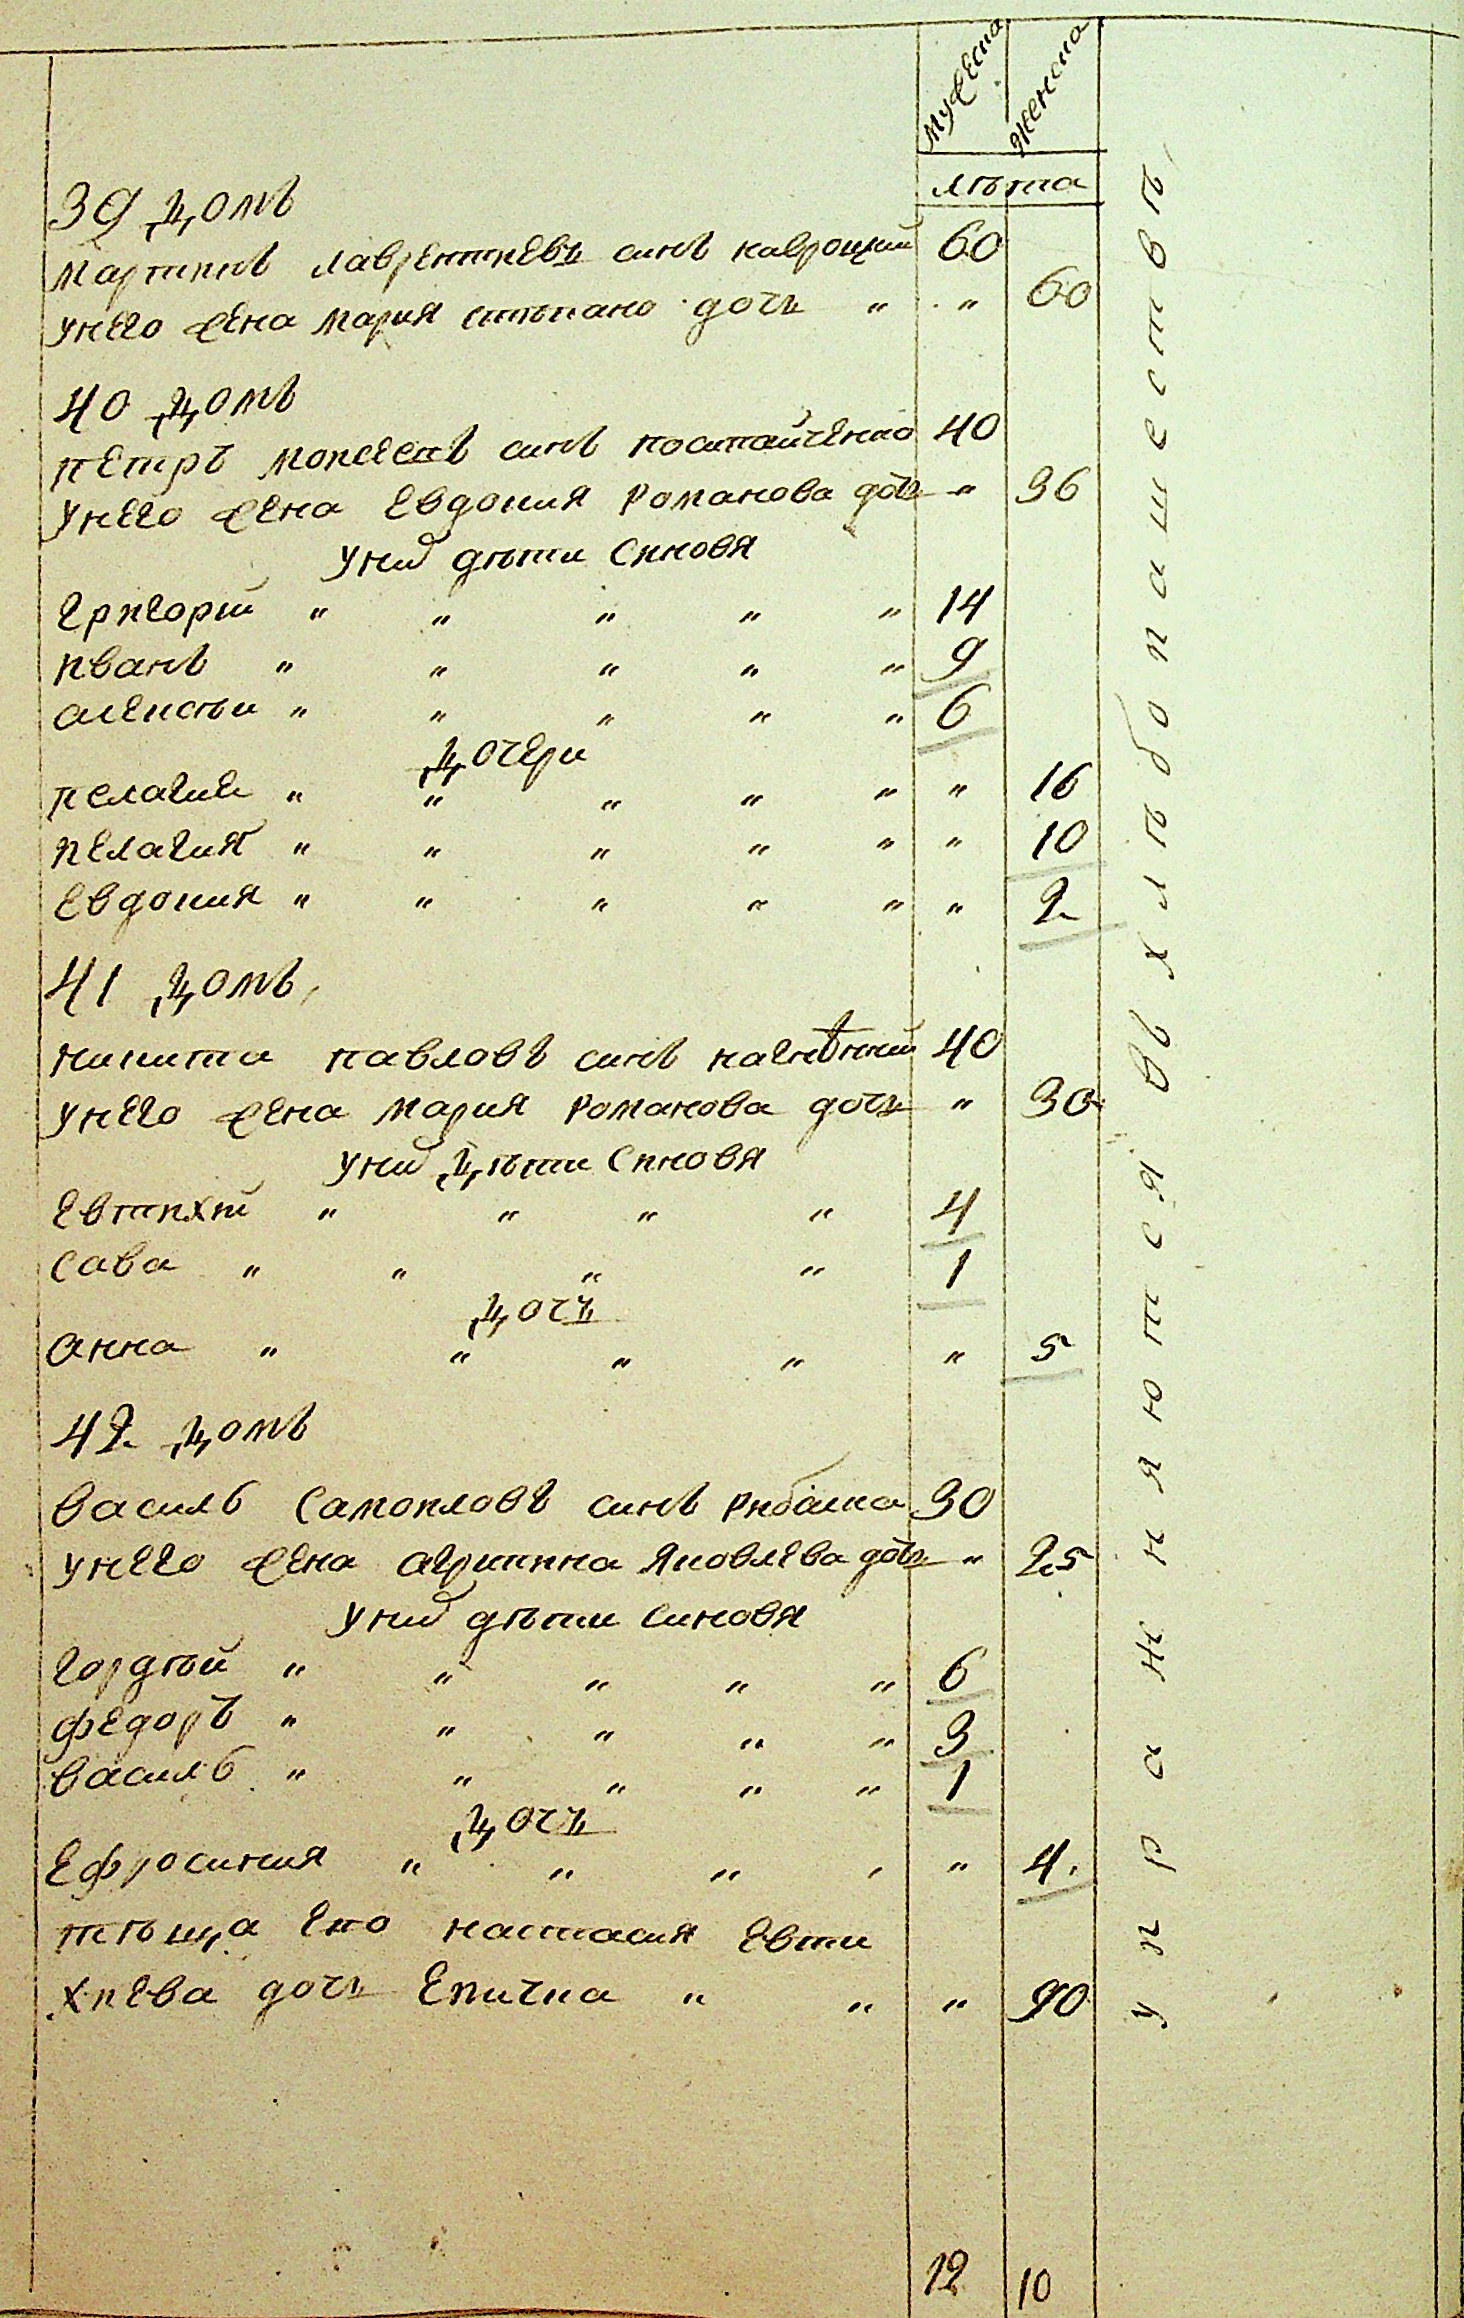 мужеска женска
лѣта
39 домъ
мартинъ лаврентиевъ синъ кавроцкий 60
унего жена мария стѣпано дочь " " 60
40 домъ
петръ моисеевъ синъ постайченко 40
унего жена евдокия романова дочь " 36
уних дѣти синовя
григорий " " " " " 14
иванъ " " " " " 9
алексѣи " " " " " 6
дочери
пелагия " " " " " " 16
пелагия " " " " " " 10
евдокия " " " " " " 2
41 домъ
никита павловъ синъ 40
унего жена мария романова дочь " 30
уних дѣти синовя
евтихий " " " " 4
сава " " " " 1
дочь
анна " " " " " 5
42 домъ
василь самоиловъ синъ рибалка 30
унего жена агрипина яковлева дочь " 25
уних дѣти синовя
гордѣй " " " " " 6
федоръ " " " " " 3
василь " " " " " 1
дочь
ефросиния " " " " " 4.
тѣща его настасия евти
хиева дочь " " " 90
12 10
упражняются въ хлѣбопашествѣ